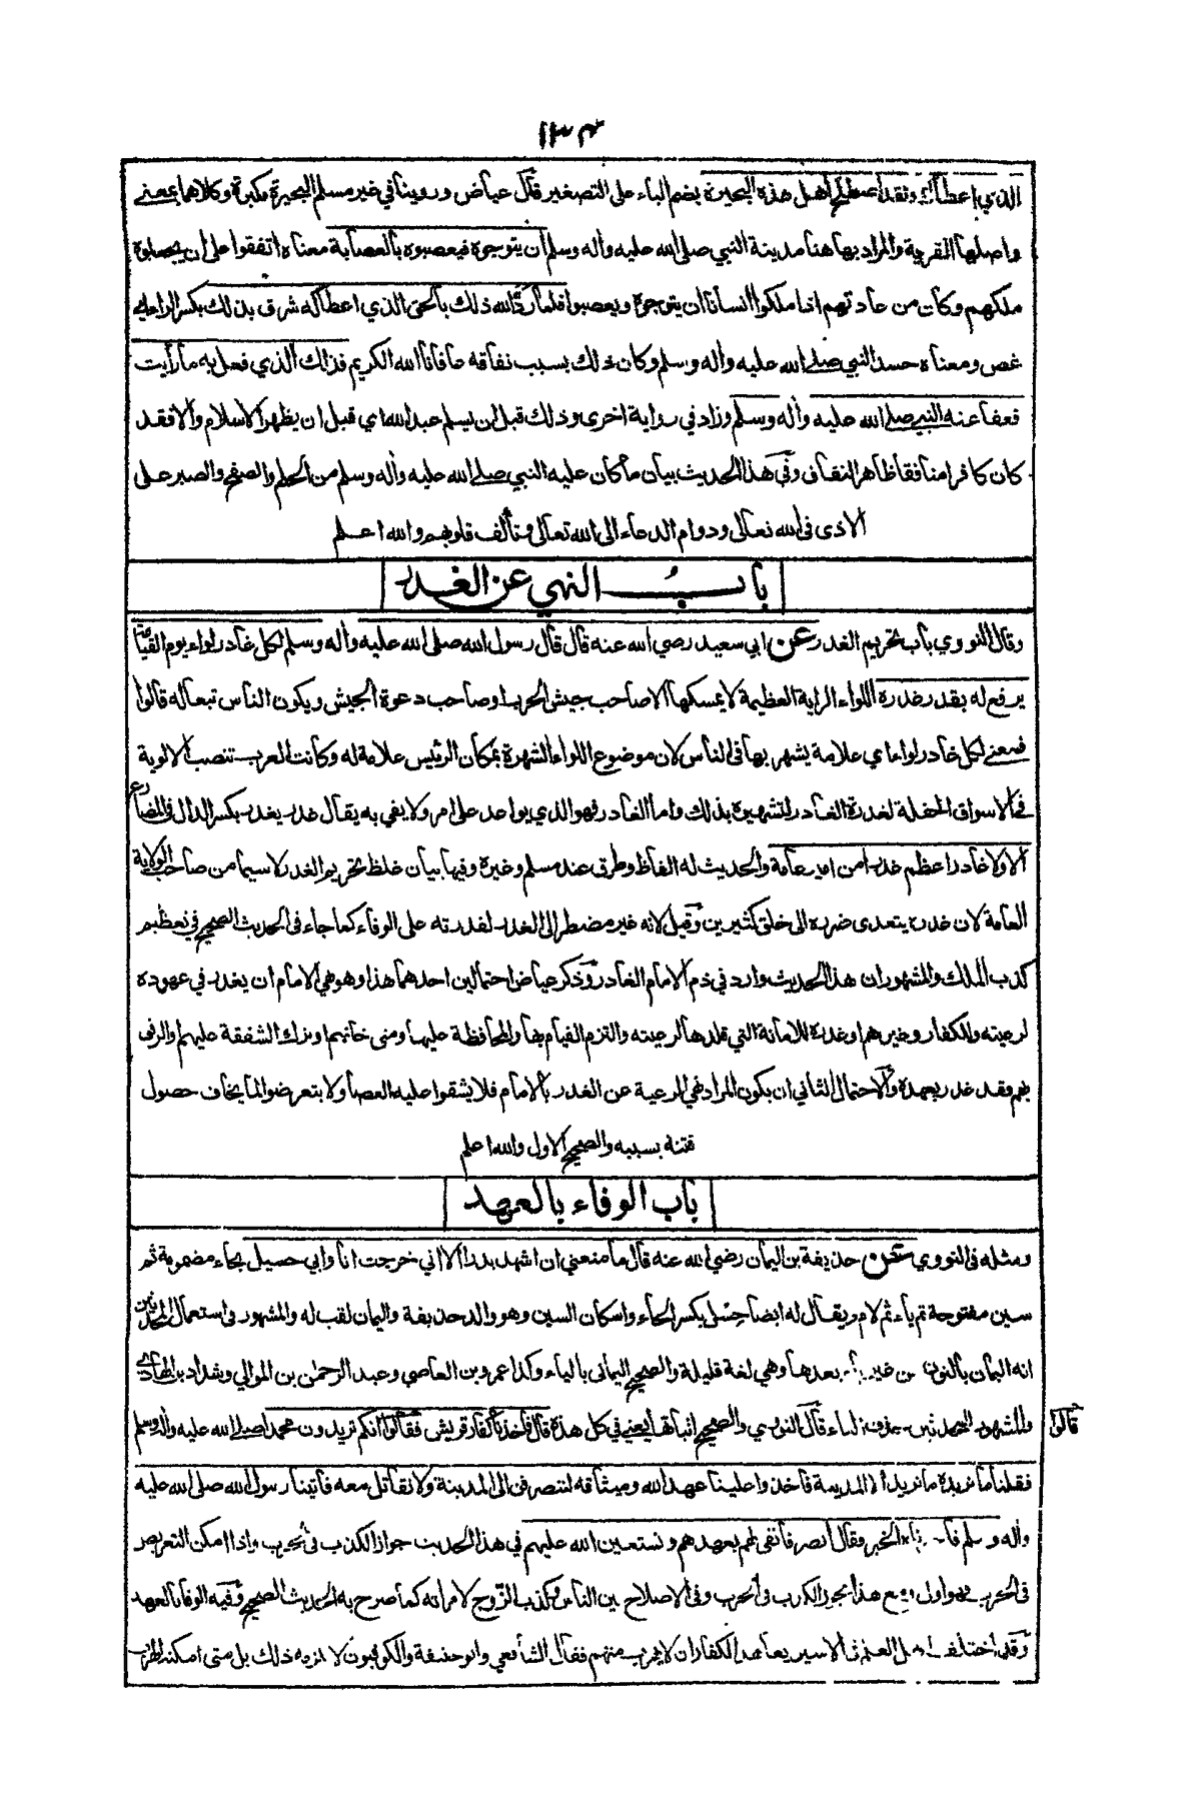 ١٣٤
الذي اعطاك ولقد اصطلح اهل هذه البحيرة بضم الباء على التصغير قال عياض وروينا في غير مسلم البحيرة مكبرة وكلاهما بمعنى
واصلها القرية والمراد بها هنا مدينة النبي صلى الله عليه واله وسلم ان يتوجوه فيعصبوه بالعصابة معناه اتفقوا على ان يجعلوه
ملكهم وكان من عادتهم اذا ملكوا انسانا ان يتوجوه ويعصبوا فلما رد الله ذلك بالحق الذي اعطاكه شرق بذلك بكسر الراء اي
غص ومعناه حسد النبي صلى الله عليه واله وسلم وكان ذلك بسبب نفاقه عافانا الله الكريم فذالك الذي فعل به ما رأيت
فعفا عنه النبي صلى الله عليه واله وسلم وزاد في رواية اخرى وذلك قبل ان يسلم عبد الله اي قبل ان يظهر الاسلام والا فقد
كان كافرا منافقا ظاهر النفاق وفي هذا الحديث بيان ما كان عليه النبي صلى الله عليه واله وسلم من الحلم والصفح والصبر على
الاذى في الله تعالى ودوام الدعاء الى الله تعالى وتألف قلوبهم والله اعلم
باب النهي عن الغدر
وقال النووي باب تحريم الغدر عن ابي سعيد رضي الله عنه قال قال رسول الله صلى الله عليه واله وسلم لكل غادر لواء يوم القيامة
يرفع له بقدر غدره اللواء الراية العظيمة لا يمسكها الا صاحب جيش الحرب او صاحب دعوة الجيش ويكون الناس تبعا له قالوا
فمعنى لكل غادر لواء اي علامة يشهر بها في الناس لان موضوع اللواء الشهرة بمكان الرئيس علامة له وكانت العرب تنصب الالوية
في الاسواق الحفلة لغدرة الغادر لتشهيره بذلك واما الغادر فهو الذي يواعد على امر ولا يفي به يقال غدر يغدر بكسر الدال في المضارع
الا ولا غادر اعظم غدرا من امير عامة والحديث له الفاظ وطرق عند مسلم وغيره وفيها بيان غلظ تحريم الغدر لا سيما من صاحب الولاية
العامة لان غدره يتعدى ضرره الى خلق كثيرين وقيل لانه غير مضطر الى الغدر لقدرته على الوفاء كما جاء في الحديث الصحيح في تعظيم
كذب الملك والمشهور ان هذا الحديث وارد في ذم الامام الغادر وذكر عياض احتمالين احدهما هذا وهو نهي الامام ان يغدر في عهوده
لرعيته وللكفار وغيرهم او غدره للامانة التي قلدها لرعيته والتزم القيام بها والمحافظة عليها ومتى خانهم او ترك الشفقة عليهم والرفق
بهم فقد غدر بعهده والاحتمال الثاني ان يكون المراد نهي الرعية عن الغدر بالامام فلا يشقوا عليه العصا ولا يتعرضوا لما يخاف حصول
فتنة بسببه والصحيح الاول والله اعلم
باب الوفاء بالعهد
ومثله في النووي عن حذيفة بن اليمان رضي الله عنه قال ما منعني ان اشهد بدرا الا اني خرجت انا وابي حسيل بحاء مضمومة ثم
سين مفتوحة ثم ياء ثم لام ويقال له ايضا حِسْل بكسر الحاء واسكان السين وهو والد حذيفة واليمان لقب له والمشهور في استعمال المحدثين
انه اليمان بالنون من غير ياء بعدها وهي لغة قليلة والصحيح اليماني بالياء وكذا عمرو بن العاصي وعبد الرحمن بن الموالي وشداد بن الهادي
والمشهور للمحدثين حذف الياء قال النووي والصحيح اثباتها يعني في كل هذه قال فاخذنا كفار قريش فقالوا انكم تريدون محمدا صلى الله عليه واله وسلم
قالوا
فقلنا ما نريده ما نريد الا المدينة فاخذوا علينا عهد الله وميثاقه لننصرفن الى المدينة ولا نقاتل معه فأتينا رسول الله صلى الله عليه
واله وسلم الخبر فقال انصرفا نفي لهم بعهدهم ونستعين الله عليهم في هذا الحديث جواز الكذب في الحرب واذا امكن التعريض
في الحرب فهو اولى ومع هذا يجوز الكذب في الحرب وفي الاصلاح بين الناس وكذب الزوج لامرأته كما صرح به الحديث الصحيح وفيه الوفاء بالعهد
وقد اختلف اهل العلم في الاسير يعاهد الكفار ان لا يهرب منهم فقال الشافعي وابو حنيفة والكوفيون لا يلزمه ذلك بل متى امكنه الهرب